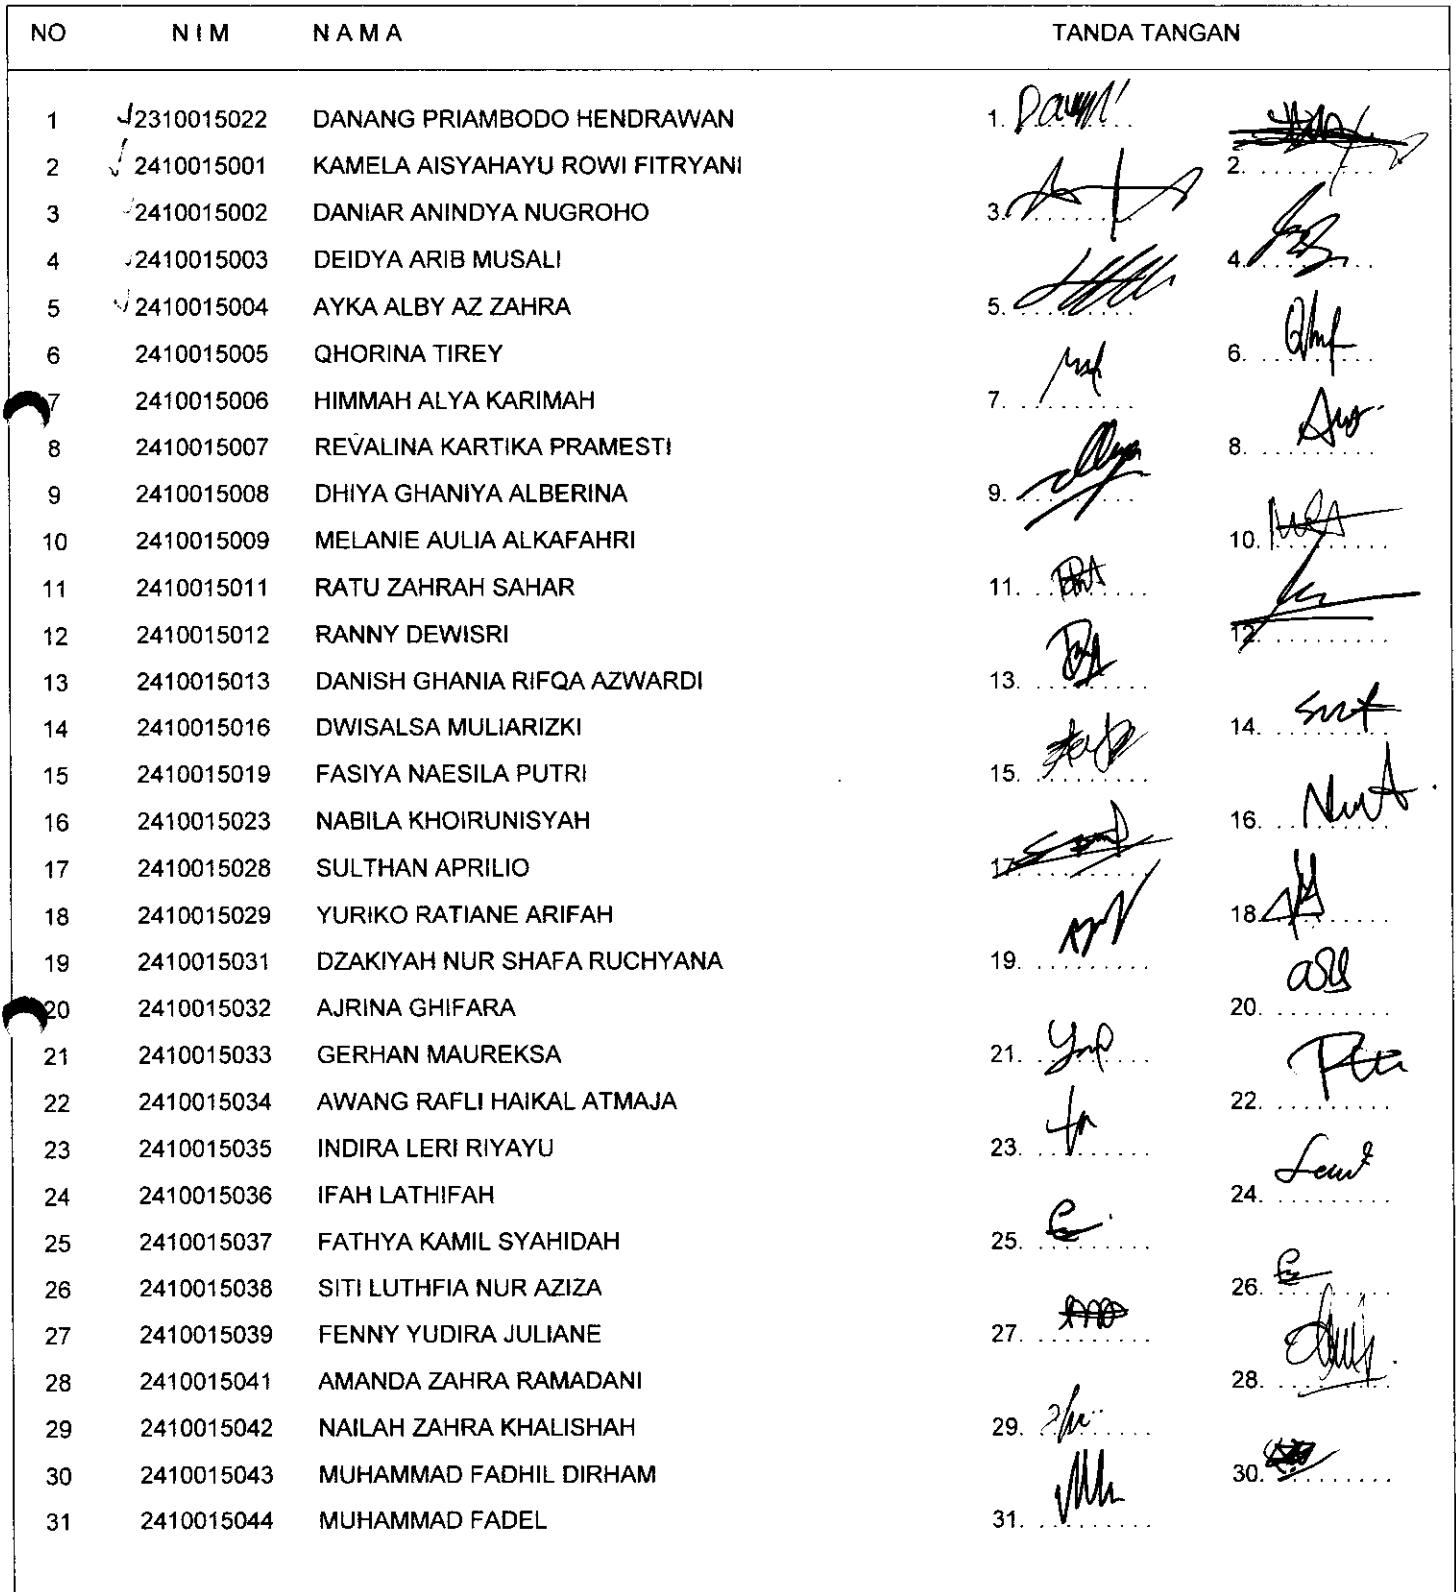 NO NIM NAMA TANDA TANGAN
1 2310015022 DANANG PRIAMBODO HENDRAWAN 1.
2 2410015001 KAMELA AISYAHAYU ROWI FITRYANI 2.
3 2410015002 DANIAR ANINDYA NUGROHO 3.
4 2410015003 DEIDYA ARIB MUSALI 4.
5 2410015004 AYKA ALBY AZ ZAHRA 5.
6 2410015005 QHORINA TIREY 6.
7 2410015006 HIMMAH ALYA KARIMAH 7.
8 2410015007 REVALINA KARTIKA PRAMESTI 8.
9 2410015008 DHIYA GHANIYA ALBERINA 9.
10 2410015009 MELANIE AULIA ALKAFAHRI 10.
11 2410015011 RATU ZAHRAH SAHAR 11.
12 2410015012 RANNY DEWISRI 12.
13 2410015013 DANISH GHANIA RIFQA AZWARDI 13.
14 2410015016 DWISALSA MULIARIZKI 14.
15 2410015019 FASIYA NAESILA PUTRI 15.
16 2410015023 NABILA KHOIRUNISYAH 16.
17 2410015028 SULTHAN APRILIO 17.
18 2410015029 YURIKO RATIANE ARIFAH 18.
19 2410015031 DZAKIYAH NUR SHAFA RUCHYANA 19.
20 2410015032 AJRINA GHIFARA 20.
21 2410015033 GERHAN MAUREKSA 21.
22 2410015034 AWANG RAFLI HAIKAL ATMAJA 22.
23 2410015035 INDIRA LERI RIYAYU 23.
24 2410015036 IFAH LATHIFAH 24.
25 2410015037 FATHYA KAMIL SYAHIDAH 25.
26 2410015038 SITI LUTHFIA NUR AZIZA 26.
27 2410015039 FENNY YUDIRA JULIANE 27.
28 2410015041 AMANDA ZAHRA RAMADANI 28.
29 2410015042 NAILAH ZAHRA KHALISHAH 29.
30 2410015043 MUHAMMAD FADHIL DIRHAM 30.
31 2410015044 MUHAMMAD FADEL 31.